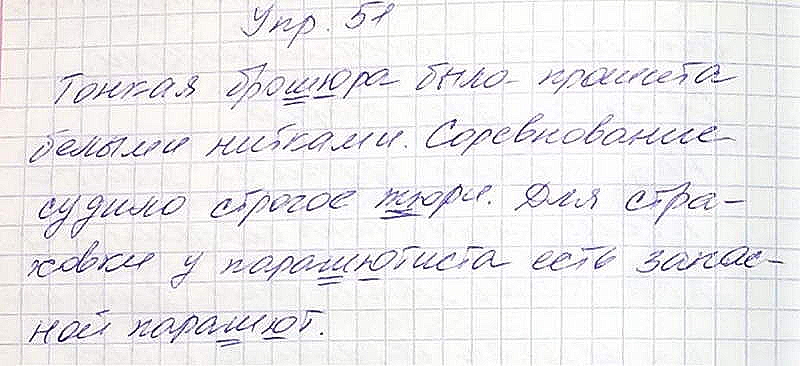 Упр. 51
Тонкая брошюра была прошита
белыми нитками. Соревнование
судило строгое жюри. Для стра-
ховки у парашютиста есть запас-
ной парашют.